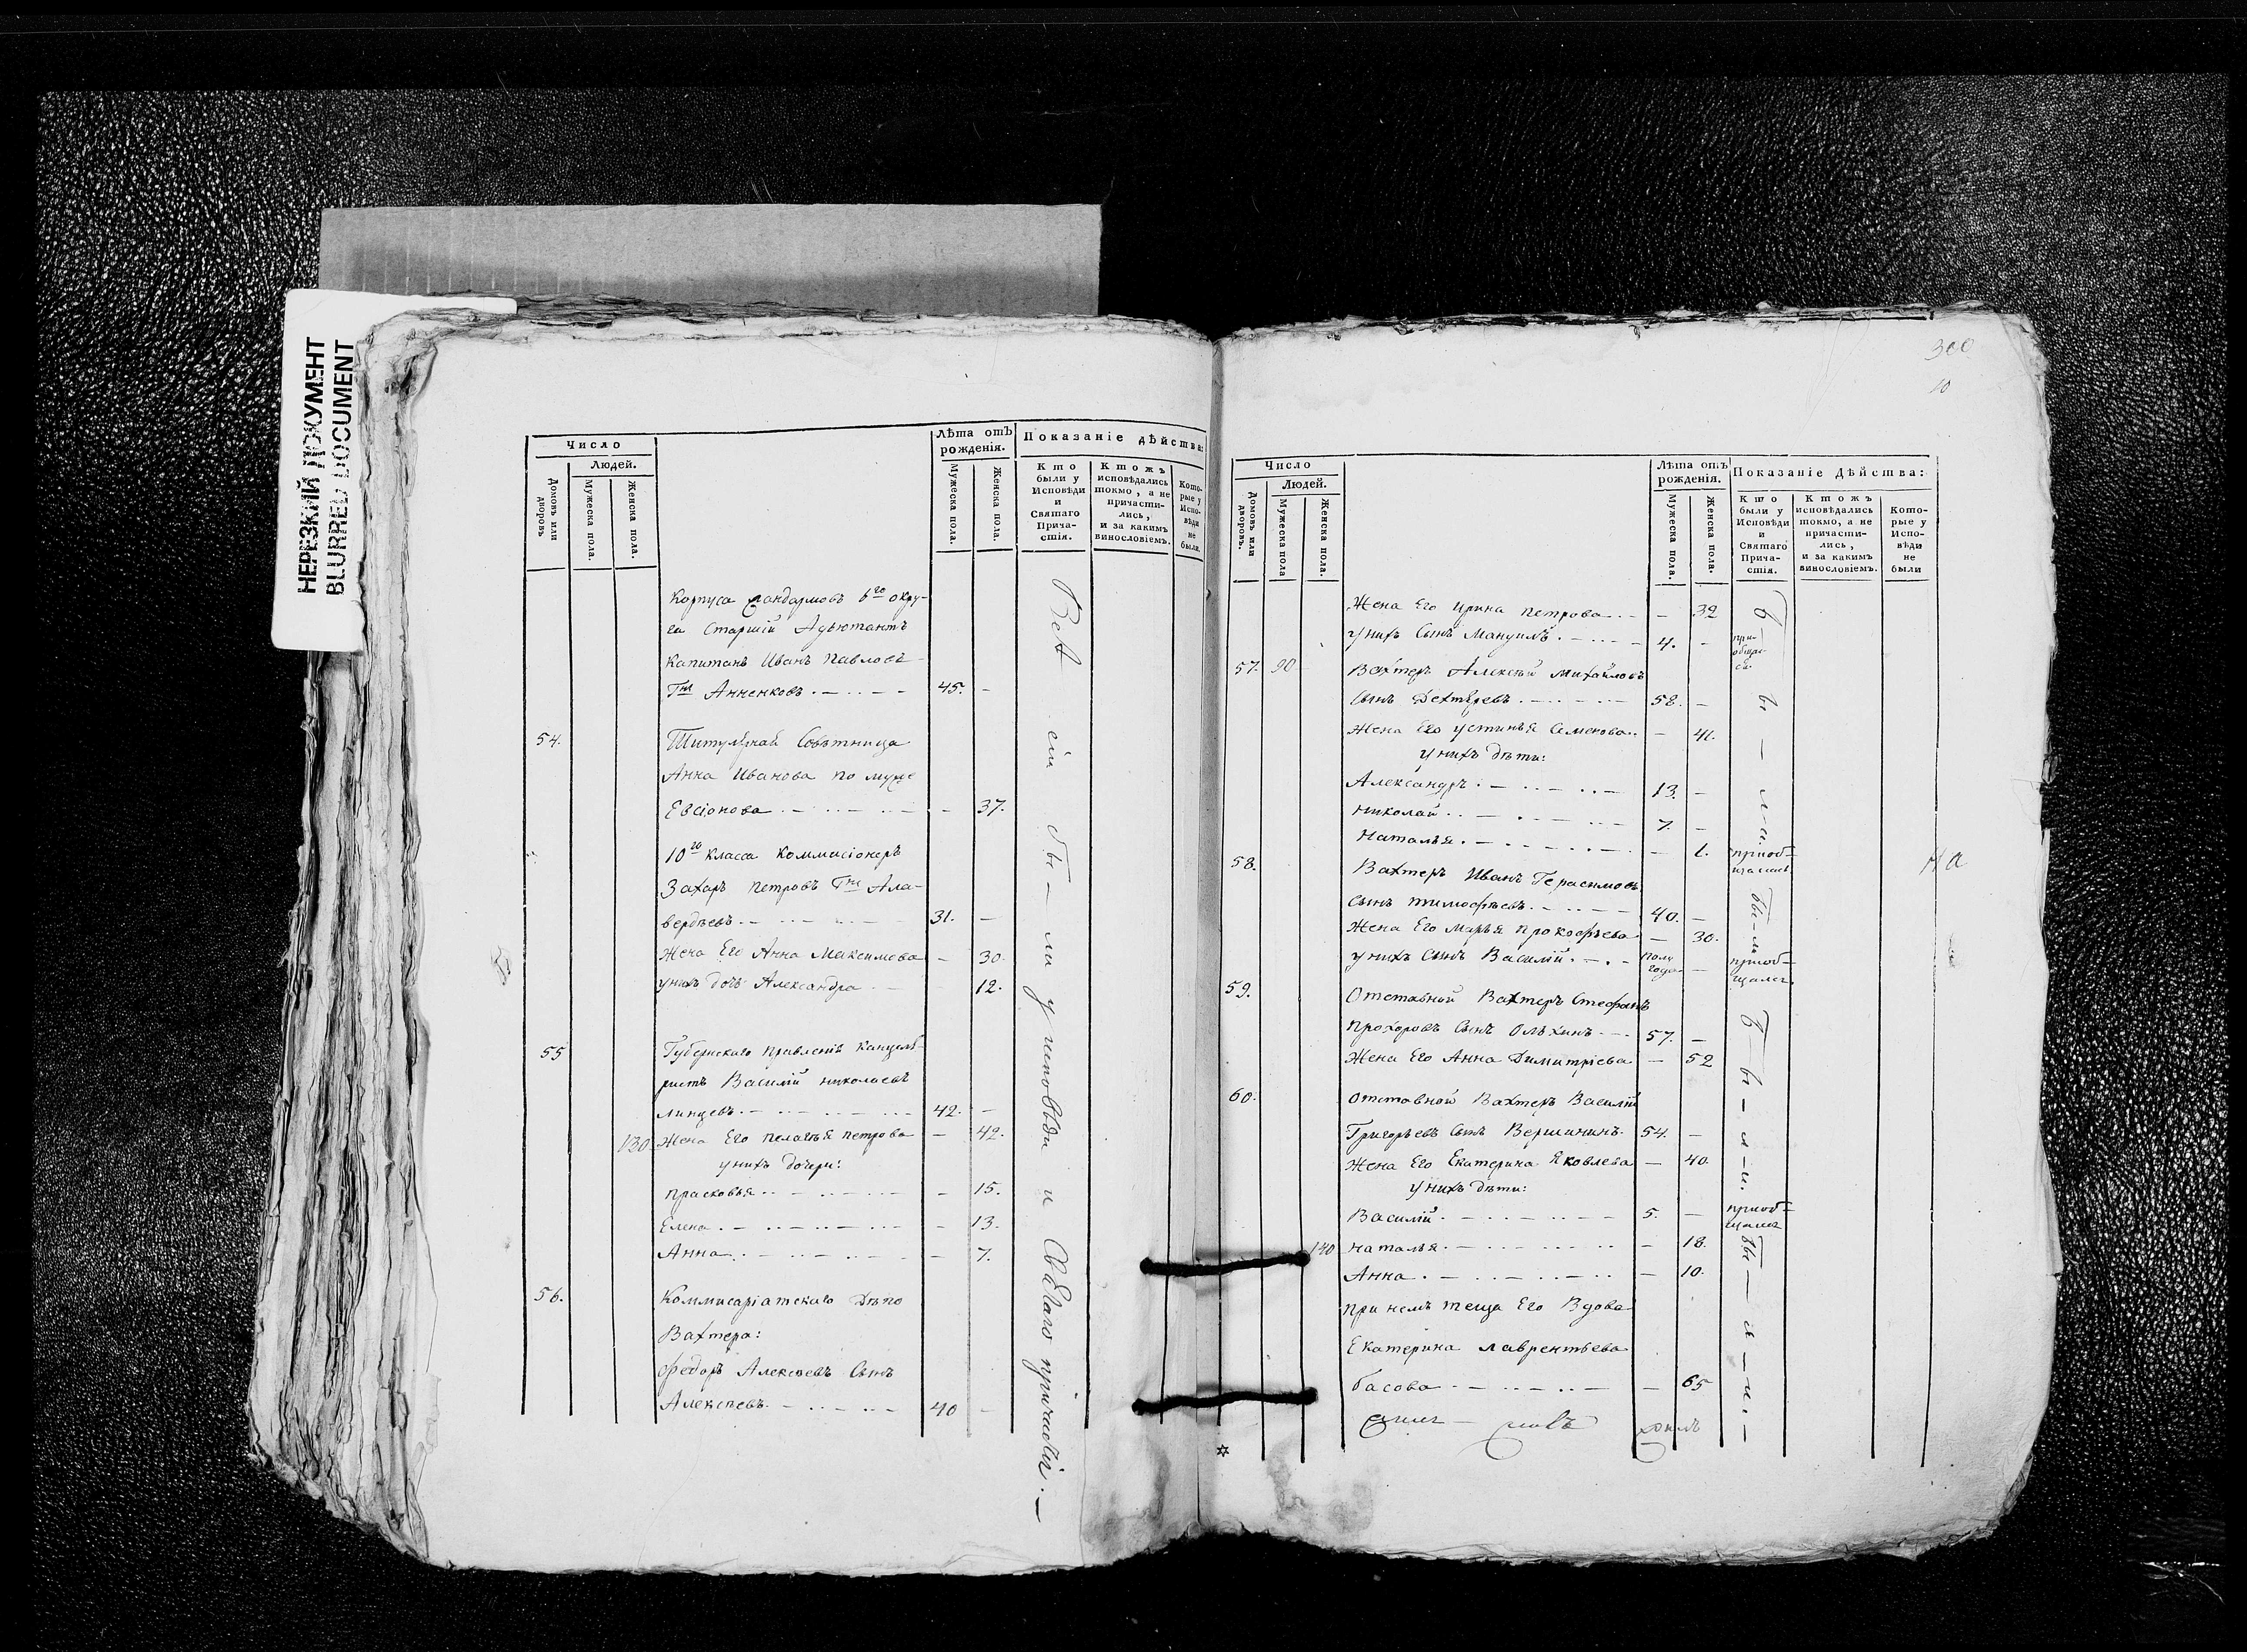 НЕРЕЗКИЙ ДОКУМЕНТ
BLURRED DOCUMENT
Число
Людей.
Домовъ или дворовъ
Мужеска пола.
Женска пола.
Лѣта отъ рожденія.
Мужеска пола.
Женска пола.
Показаніе дѣйства:
Кто были у Исповѣди и Святаго Прича-стія.
Ктожъ исповѣдались токмо, а не причасти-лись, и за какимъ винословіемъ.
Кото-рые у Испо-вѣди не были.
Корпуса Жандармовъ 6го окру-
га Старшій Адьютантъ
Капитанъ Иванъ Павловъ
Гнъ Анненковъ. 45. -
54. Титулярная Совѣтница
Анна Иванова по муже
Евсіонова - 37.
10го класса Коммисіонеръ
Захаръ Петровъ Гнъ Ала-
вердѣевъ. 31. -
Жена Его Анна Максимова - 30.
у нихъ дочь Александра 12.
55 Губернскаго Правленія Канцеля-
ристъ Василій Николаевъ
42. -
130 Жена Его Пелагѣя Петрова - 42.
у нихъ дочери:
Прасковья - 15.
Елена - 13.
Анна - 7.
56. Коммисаріатскаго Дѣпо
Вахтера:
Федоръ Алексѣевъ Сынъ
Алексѣевъ. 40 -
Всѣ сіи бы-ли у исповѣди и Святаго причастія.
300
10
Число
Людей.
Домовъ или дворовъ.
Мужеска пола
Женска пола.
Лѣта отъ рожденія.
Мужеска пола.
Женска пола.
Показаніе Дѣйства:
Кто были у Исповѣди и Святаго Прича-стія.
Ктожъ исповѣдались токмо, а не причасти-лись, и за какимъ винословіемъ.
Кото-рые у Испо-вѣди не были
Жена Его Ирина Петрова - 32
у нихъ Сынъ Мануилъ. 4. - при-общал-ся.
57. 90 Вахтеръ Алексѣй Михайловъ
Сынъ Дехтяревъ. 58. -
Жена Его Устинья Семенова - 41.
у нихъ дѣти:
Александръ. 13. -
Николай 7. -
Наталья. - 1. приоб-щалась
58. Вахтеръ Иванъ Герасимовъ
Сынъ Тимофѣевъ. 40. -
Жена Его Марья Прокофьева - 30.
у нихъ Сынъ Василій. полу года - приоб-щался
59. Отставной Вахтеръ Стефанъ
Прохоровъ Сынъ Олѣхинъ 57. -
Жена Его Анна Димитріева - 52
60. Отставной Вахтеръ Василій
Григорьевъ Сынъ Вершининъ. 54. -
Жена Его Екатерина Яковлева - 40.
у нихъ дѣти:
Василій. 5. - приоб-щался
140 Наталья. - 18.
Анна. - 10.
При немъ теща Его Вдова
Екатерина Лаврентьева
Басова - 65
бы-ли.